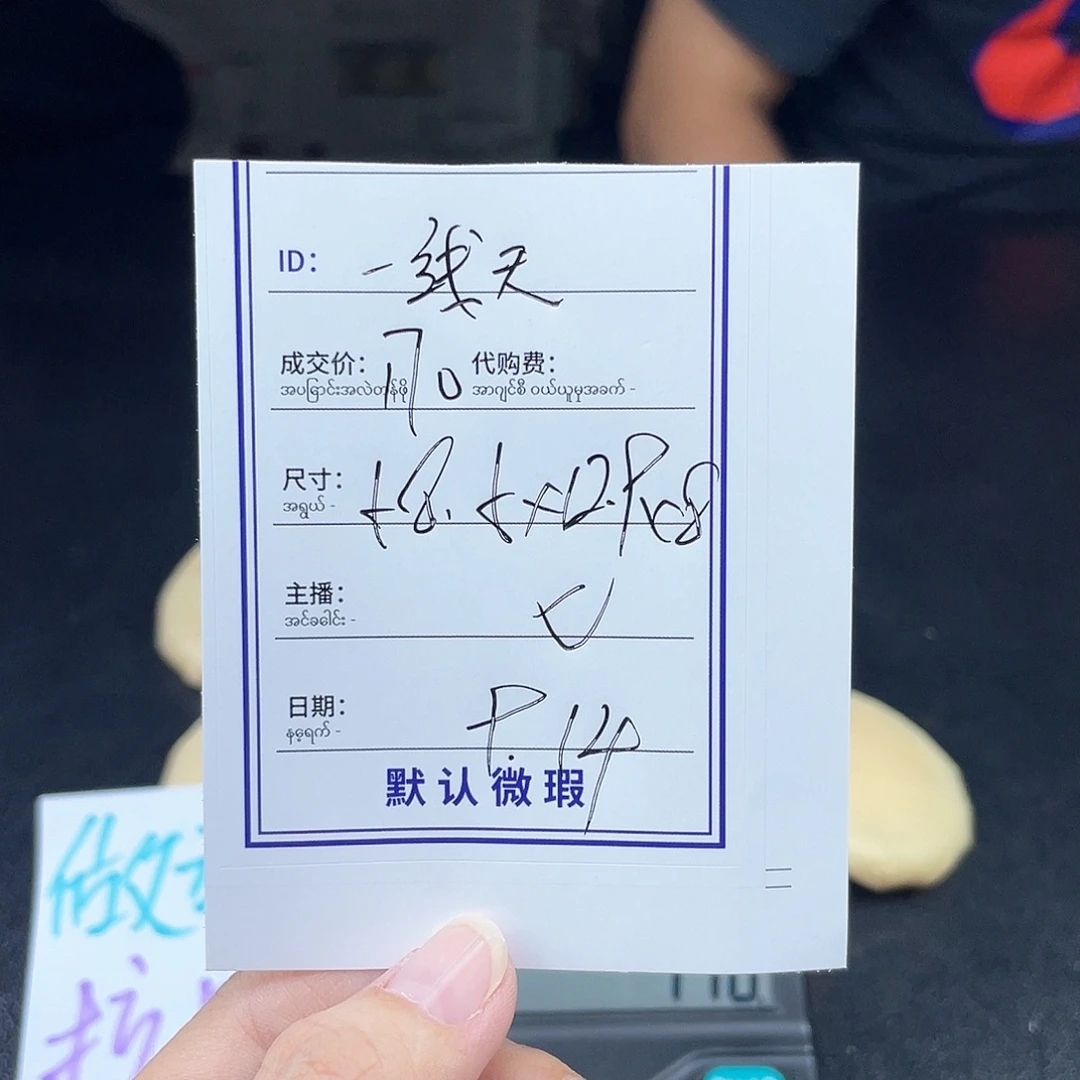 ID: 一线天
成交价: 170 代购费:
အပြောင်းအလဲတန်ဖိုး အာဂျင်စီ ဝယ်ယူမှုအခက် -
尺寸:
အရွယ် -
主播:
အင်ခေါင်း -
日期: 9.14
နေ့ရက် -
默认微瑕
做
抗
170